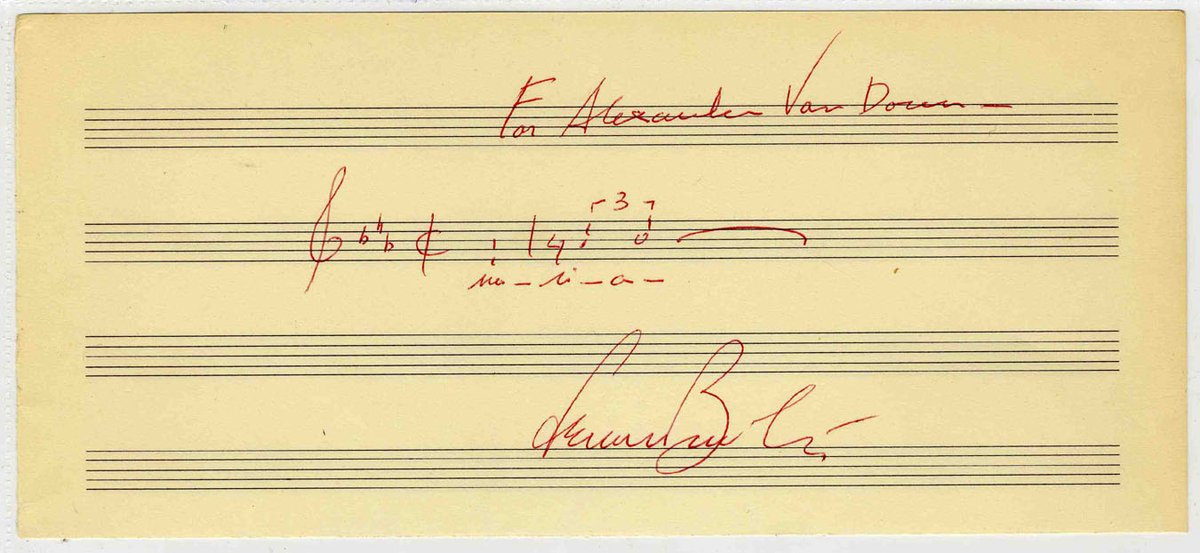 For Alexander Van
3
Ma - ri - a -
Leonard Bernstein